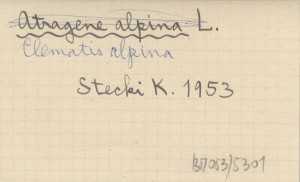 Atragene alpina L.
Clematis alpina
Stecki K. 1953